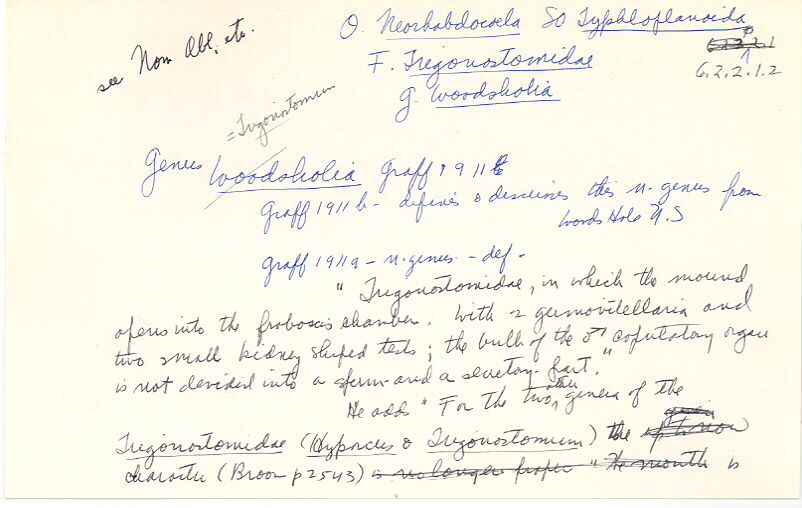 O. Neorhabdocoela SO Typhloplanoida
see Nom Abl, etc.
F. Trigonostomidae
6.2.2.1.2
G. Woodsholia
= Trigonostomum
Genus Woodsholia Graff 1911b
Graff 1911b - defines & describes this n. genus from
Woods Hole U.S
Graff 1911a - n. genus - def -
" Trigonostomidae, in which the mound
opens into the proboscis chamber. With 2 germovitellaria and
two small kidney shaped tests; the bulb of the ♂ copulatory organ
is not devided into a sperm and a secretory part."
He adds " For the two other genera of the
Trigonostomidae (Hyporcus & Trigonostomum) the given
character (Bronn p 2543) is no longer proper " The mouth is